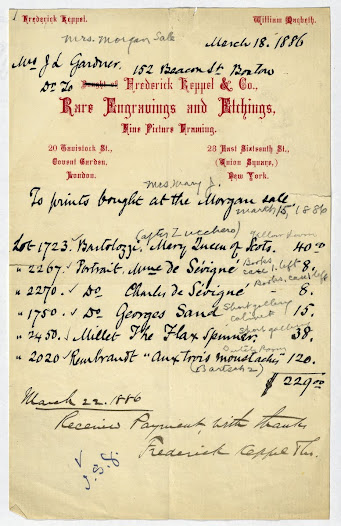 Frederick Keppel.
William Macbeth.
Mrs. Morgan Sale
March 18. 1886
Mrs J L Gardner. 152 Beacon St Boston
Dr To Bought of Frederick Keppel & Co.,
Rare Engravings and Etchings,
Fine Picture Framing.
20 Tavistock St., Covent Garden, London.
23 East Sixteenth St., (Union Square,) New York.
Mrs Mary J.
To prints bought at the Morgan sale
March 15, 1886
(after Zucchero) yellow room
Lot 1723. Bartolozzi. Mary Queen of Scots. 40.00
Books case 1. left
" 2267. Portrait. Mme de Sévigné 8.
Books, case left
" 2270. Do Charles de Sévigné - 8.
" 1750 Do Georges Sand 15.
Short gallery cabinet
" 2450. Millet The Flax Spinner. 38.
Short gallery
Dutch Room
" 2020 Rembrandt "Aux trois moustaches" 120.
(Bartsch 2)
$229.00
March 22. 1886
Receive Payment, with thanks
Frederick Keppel